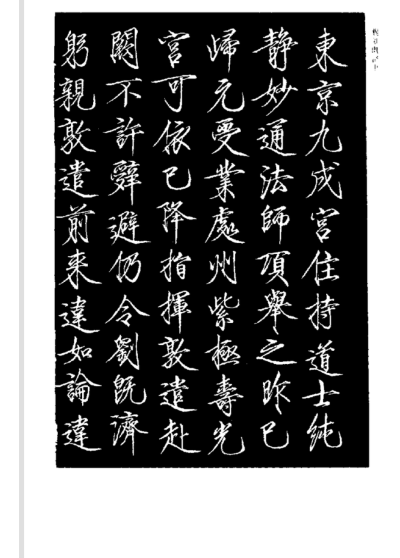 東京九成宮住持道士純
静妙通法師項舉之昨已
歸元受業處州紫極壽光
宮可依已降指揮敦遣赴
闕不許辭避仍令劉既濟
躬親敦遣前來違如論違